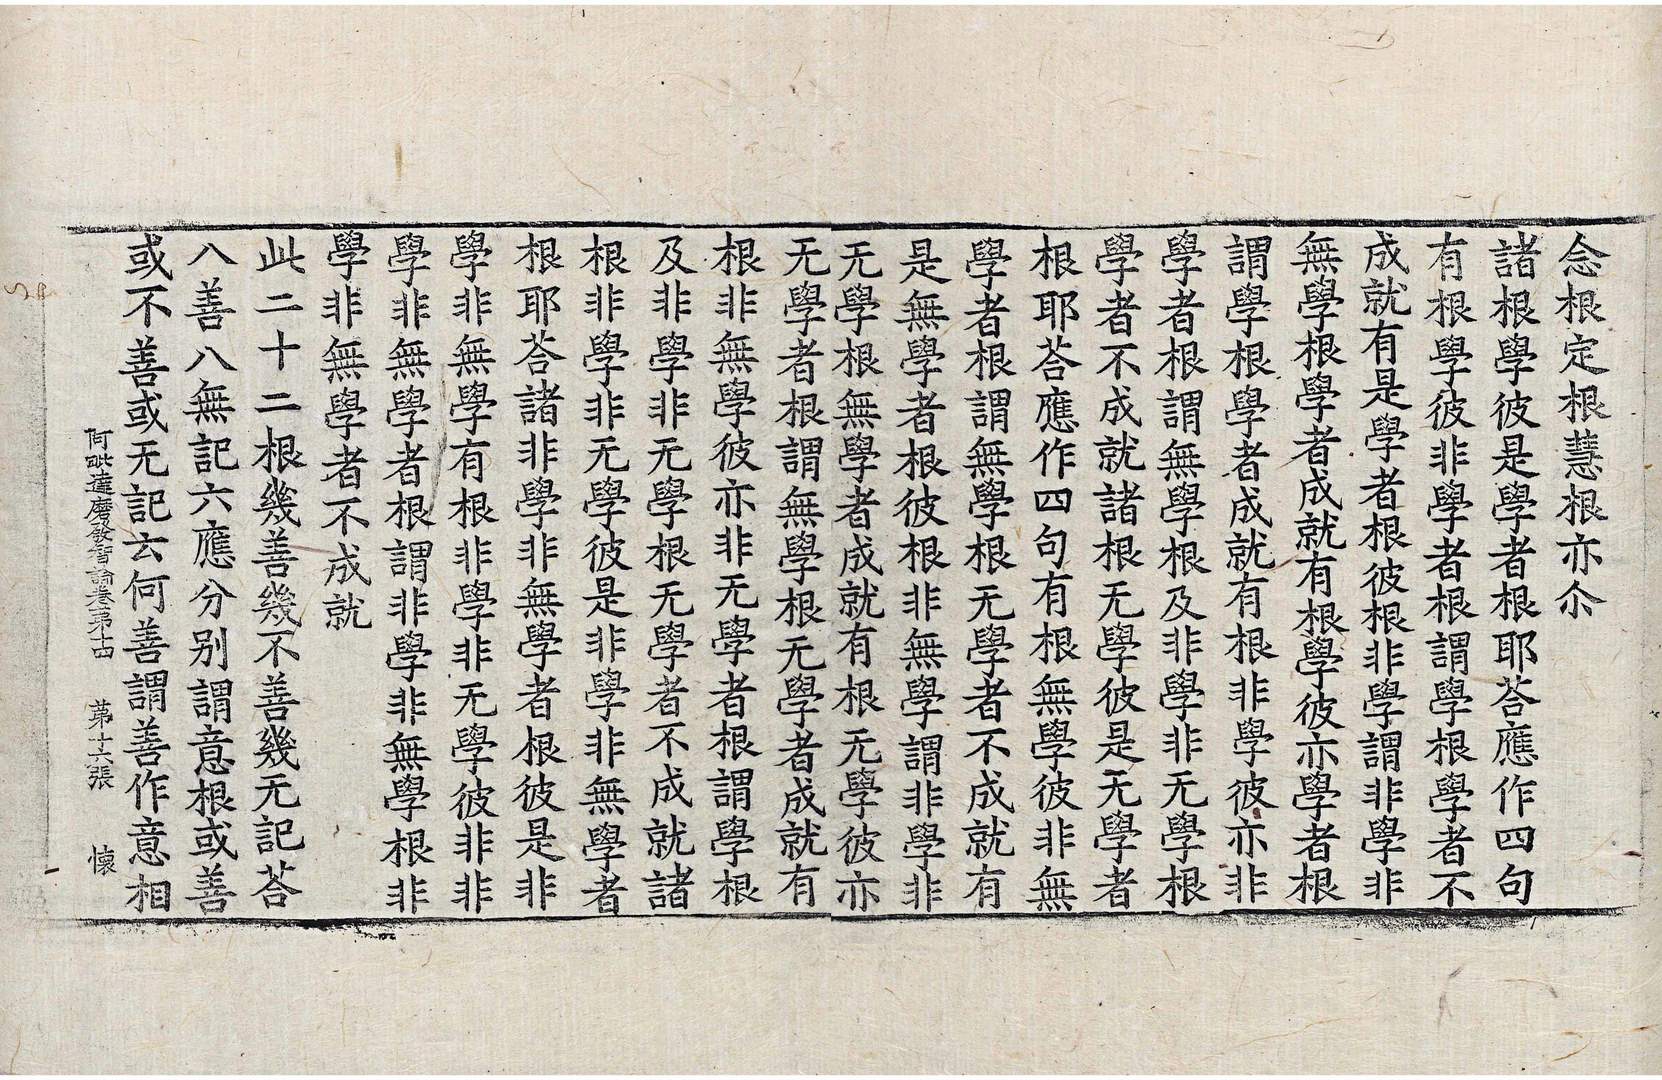 念根定根慧根亦尒
諸根學彼是學者根耶荅應作四句
有根學彼非學者根謂學根學者不
成就有是學者根彼根非學謂非學非
無學根學者成就有根學彼亦學者根
謂學根學者成就有根非學彼亦非
學者根謂無學根及非學非无學根
學者不成就諸根无學彼是无學者
根耶荅應作四句有根無學彼非無
學者根謂無學根无學者不成就有
是無學者根彼根非無學謂非學非
无學根無學者成就有根无學彼亦
无學者根謂無學根无學者成就有
根非無學彼亦非无學者根謂學根
及非學非无學根无學者不成就諸
根非學非无學彼是非學非無學者
根耶荅諸非學非無學者根彼是非
學非無學有根非學非无學彼非非
學非無學者根謂非學非無學根非
學非無學者不成就
此二十二根幾善幾不善幾无記荅
八善八無記六應分别謂意根或善
或不善或无記云何善謂善作意相
阿毗達磨發智論卷第十四 第十六張 懷